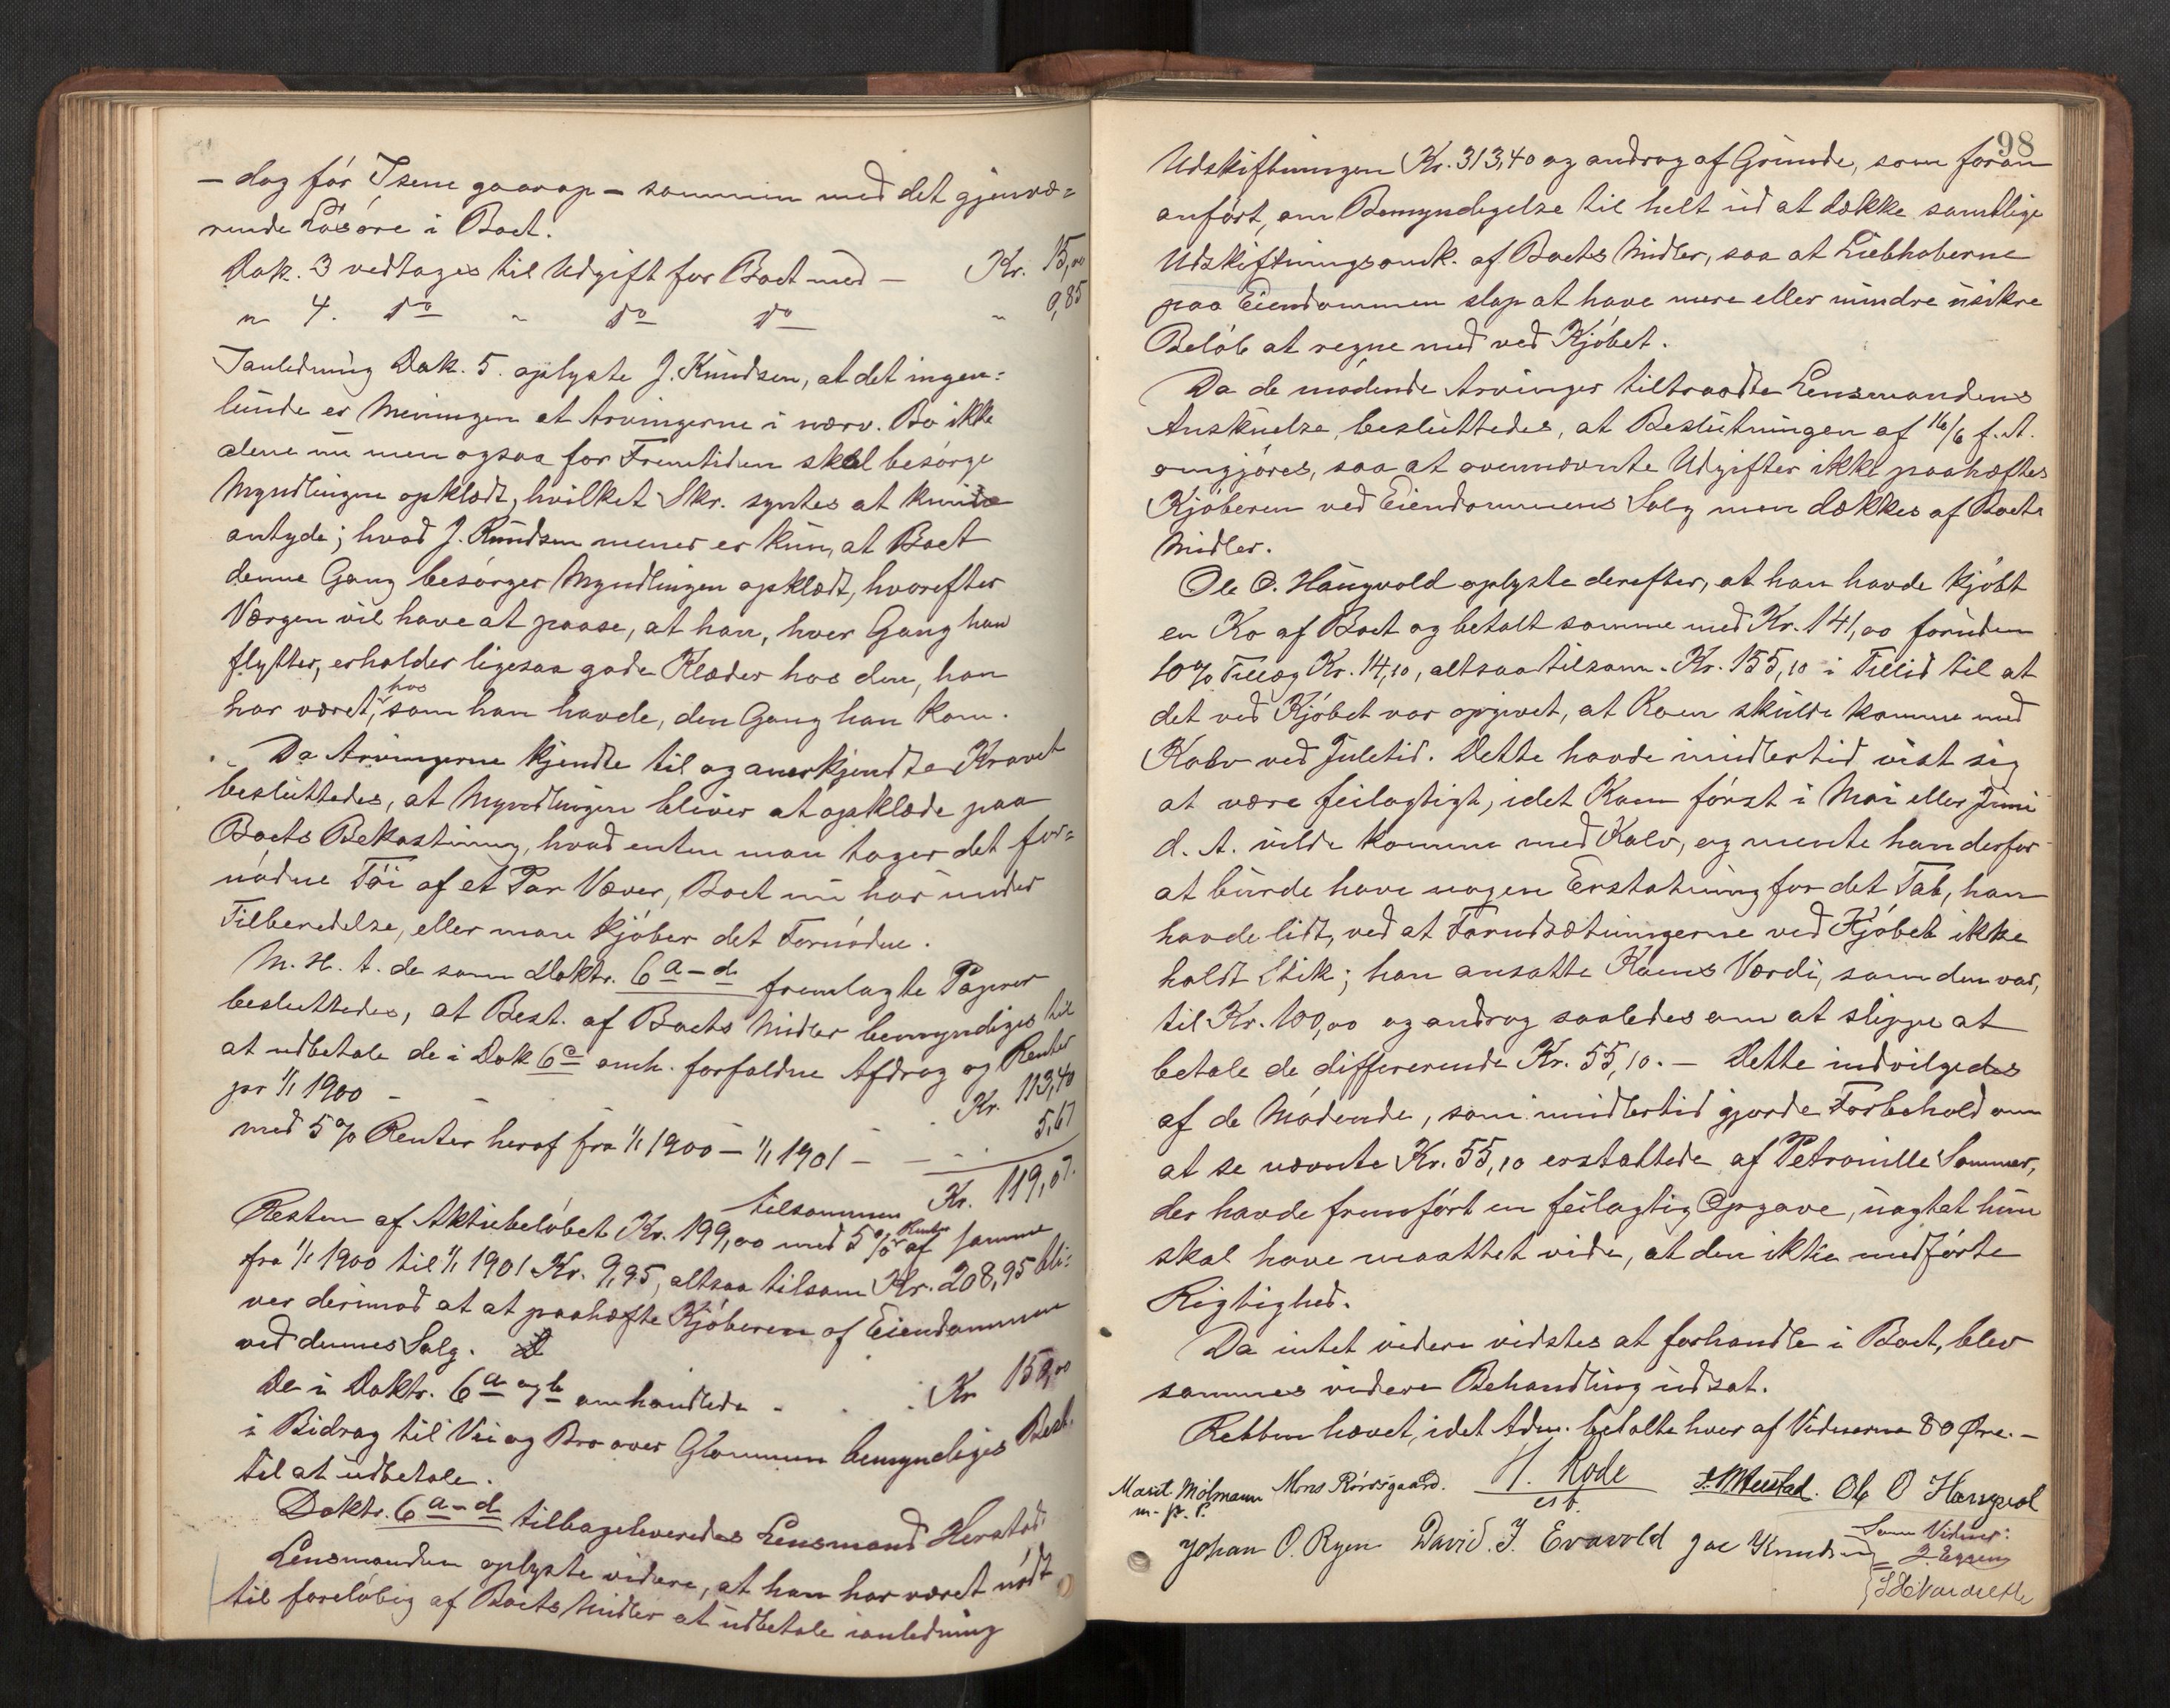 – dog før Isene gaarop – sammen med det gjenvæ=
rende Løsøre i Boet.
Dok. 3 vedtages til Udgift for Boet med – Kr. 15,00
" 4. do " do do " 0,85
Ianledning Dok. 5. oplyste J. Knudsen, at det ingen=
lunde er Meningen at Arvingerne i nærv. Bo ikke
alene nu men ogsaa for Fremtiden skal besørge
Myndlingen opklædt, hvilket Skr. syntes at kunne
antyde; hvad J. Knudsen mener er kun, at Boet
denne Gang besørger Myndlingen opklædt, hvorefter
Værgen vil have at paase, at han, hver Gang han
flytter, erholder ligesaa gode Klæder hos den, han
har været hos, som han havde, den Gang han kom.
Da Arvingerne kjendte til og anerkjendte Kravet
besluttedes, at Myndlingen bliver at opklæde paa
Boets Bekostning, hvad enten man tager det for=
nødne Tøi af et Par Væver, Boet nu har under
Tilberedelse, eller man kjøber det Fornødne.
M. H. t. de som Doktr. 6 a–d fremlagte Papirer
besluttedes, at Best. af Boets Midler bemyndiges til
at udbetale de i Dok 6c omh. forfaldne Afdrag og Renter
pr 1/1 1900 – – – Kr. 113,40
med 5% Renter heraf fra 1/1 1900 – 1/1 1901 – – 5,67
tilsammen Kr. 119,07.
Resten af Aktiebeløbet Kr. 199,00 med 5% Renter af samme
fra 1/1 1900 til 1/1 1901 Kr. 9,95, altsaa tilsam Kr. 208,95 bli=
ver derimod at at paahæfte Kjøberen af Eiendommen
ved dennes Salg.
De i Doktr. 6 a og b omhandlede . . . Kr 150,00
i Bidrag til Vei og Bro over Glommen bemyndiges Best.
til at udbetale.
Doktr. 6 a–d tilbageleveredes Lensmand Herstad
Lensmanden oplyste videre, at han har været nødt
til foreløbig af Boets Midler at udbetale ianledning
98
Udskiftningen Kr. 313,40 og androg af Grunde, som foran
anført, om Bemyndigelse til helt ud at dække samtlige
Udskiftningsomk. af Boets Midler, saa at Liebhaberne
paa Eiendommen slap at have mere eller mindre usikre
Beløb at regne med ved Kjøbet.
Da de mødende Arvinger tiltraadte Lensmandens
Anskuelse, besluttedes, at Beslutningen af 16/6 f. A.
omgjøres, saa at ovennævnte Udgifter ikke paahæftes
Kjøberen ved Eiendommens Salg men dækkes af Boets
Midler.
Ole O. Haugvold oplyste derefter, at han havde kjøbt
en Ko af Boet og betalt samme med Kr. 141,00 foruden
10% Tillæg Kr. 14,10, altsaa tilsam. Kr. 155,10 i Tillid til at
det ved Kjøbet var opgivet, at Koen skulde komme med
Kalv ved Juletid. Dette havde imidlertid vist sig
at være feilagtigt, idet Koen først i Mai eller Juni
d. A. vilde komme med Kalv, og mente han derfor
at burde have nogen Erstatning for det Tab, han
havde lidt, ved at Forudsætningerne ved Kjøbet ikke
holdt Stik; han ansatte Koens Værdi, som den var,
til Kr. 100,00 og androg saaledes om at slippe at
betale de differerende Kr. 55,10. – Dette indvilgedes
af de Mødende, som imidlertid gjorde Forbehold om
at se nævnte Kr. 55,10 erstattede af Petronille Sommer,
der havde fremført en feilagtig Opgave, uagtet hun
skal have maattet vide, at den ikke medførte
Rigtighed.
Da intet videre vidstes at forhandle i Boet, blev
sammes videre Behandling udsat.
Retten hævet, idet Adm. betalte hver af Vidnerne 80 Øre. –
Marit Molmann Mons Rørosgaard. H. Rode Ole O Haugvol
m. p. P. est.
Johan O. Ryen David. J. Evavold Jac Knudsen Som Vidner:
J. Eggen